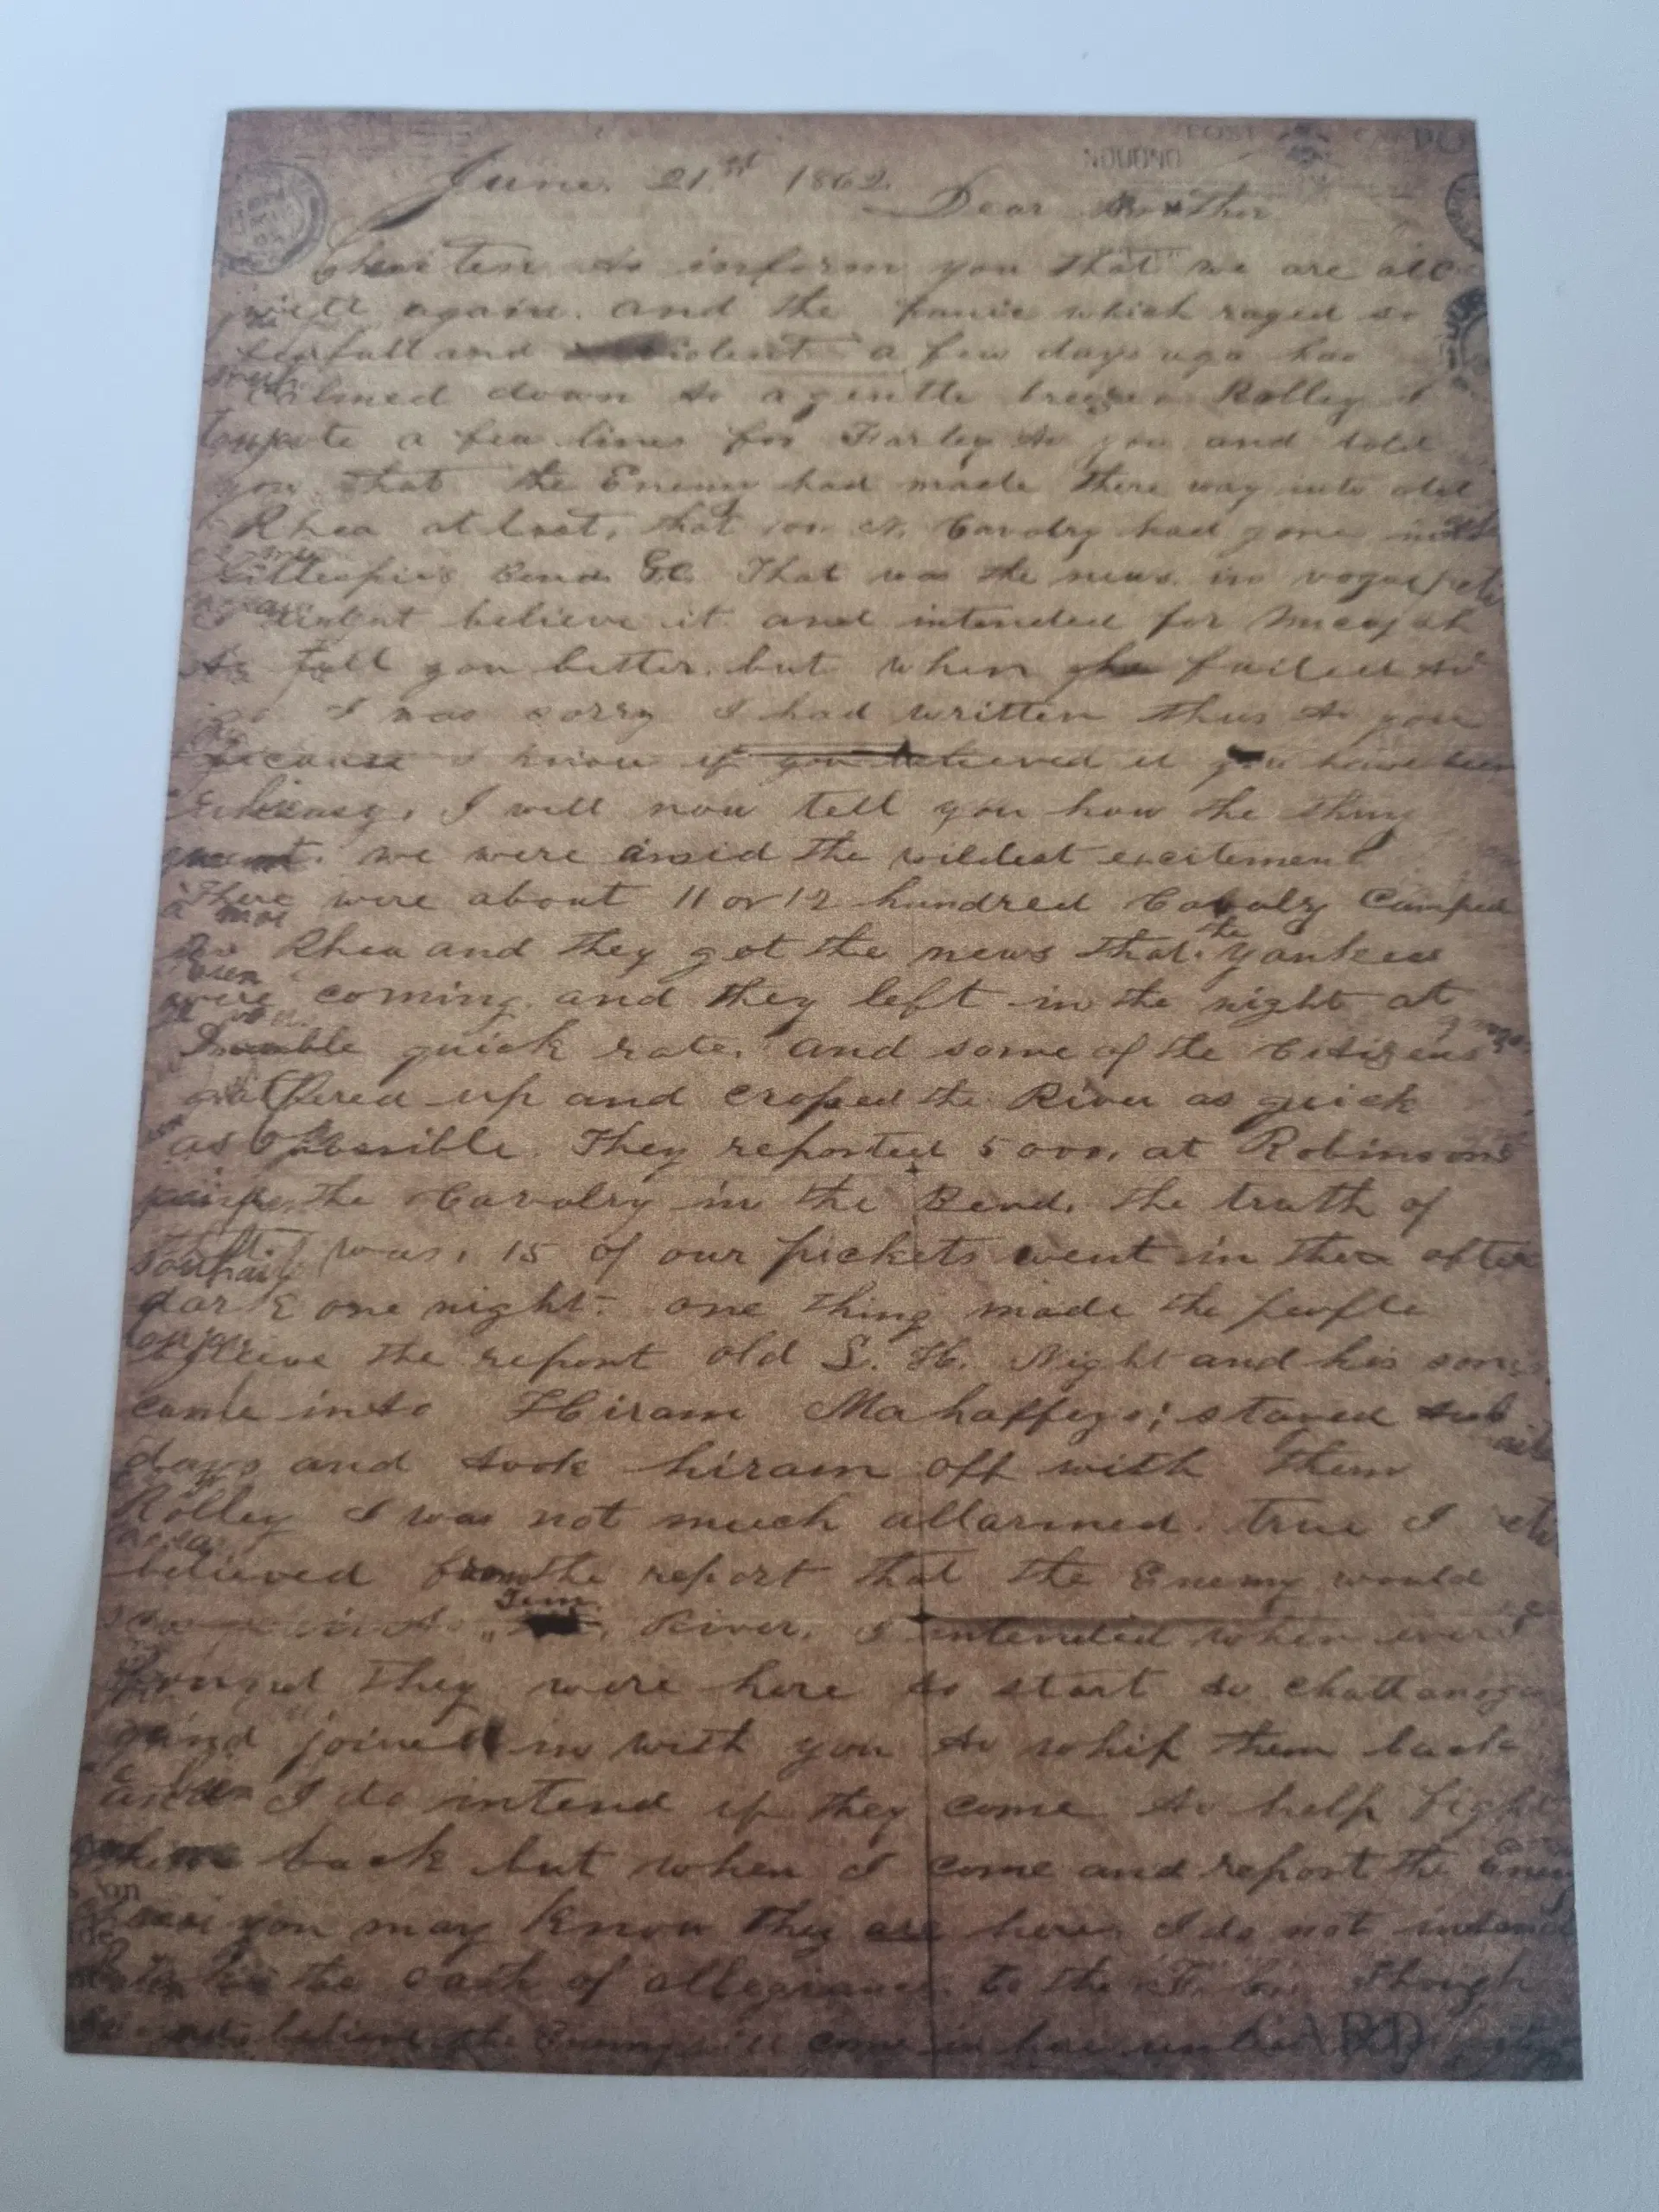 POST CARD
LONDON
June. 21st 1862.
Dear Brother
to inform you that we are all
well again. and the panic which raged so
fearfull and violent a few days ago has
calmed down to a gentle breeze Rolley I
wrote a few lines for Farley to you and told
you that the Enemy had made there way into old
Rhea at last, that Cavalry had gone into
Gillespies Bend &c. That was the news in vogue
believe it and intended for Micajah
to tell you better. but when he failed to
go I was sorry I had written thus to you
because I know if you believed it you have been
uneasy. I will now tell you how the thing
went. we were amid the wildest excitement
There were about 11 or 12 hundred Cavalry Camped
in Rhea and they got the news that the Yankees
were coming. and they left in the night at
double quick rate. and some of the Citizens
gathered up and crosed the River as quick
as possible. They reported 5000. at Robinsons
the Cavalry in the Bend. the truth of
it was, 15 of our pickets went in there after
dark one night. one thing made the people
believe the report old S. H. Night and his sons
came into Hiram Mahaffeys; stayed
days and took hiram off with them
Rolley I was not much allarmed. true I
believed from the report that the Enemy would
in to Tenn. River. I intended when ever I
found they were here to start to Chattanooga
and joined in with you to whip them back
and I do intend if they come to help fight
them back but when I come and report the Enemy
here you may know they are here I do not intend
to take the oath of allegiance to the though
I do not believe the Enemy will come in here unless
CARD